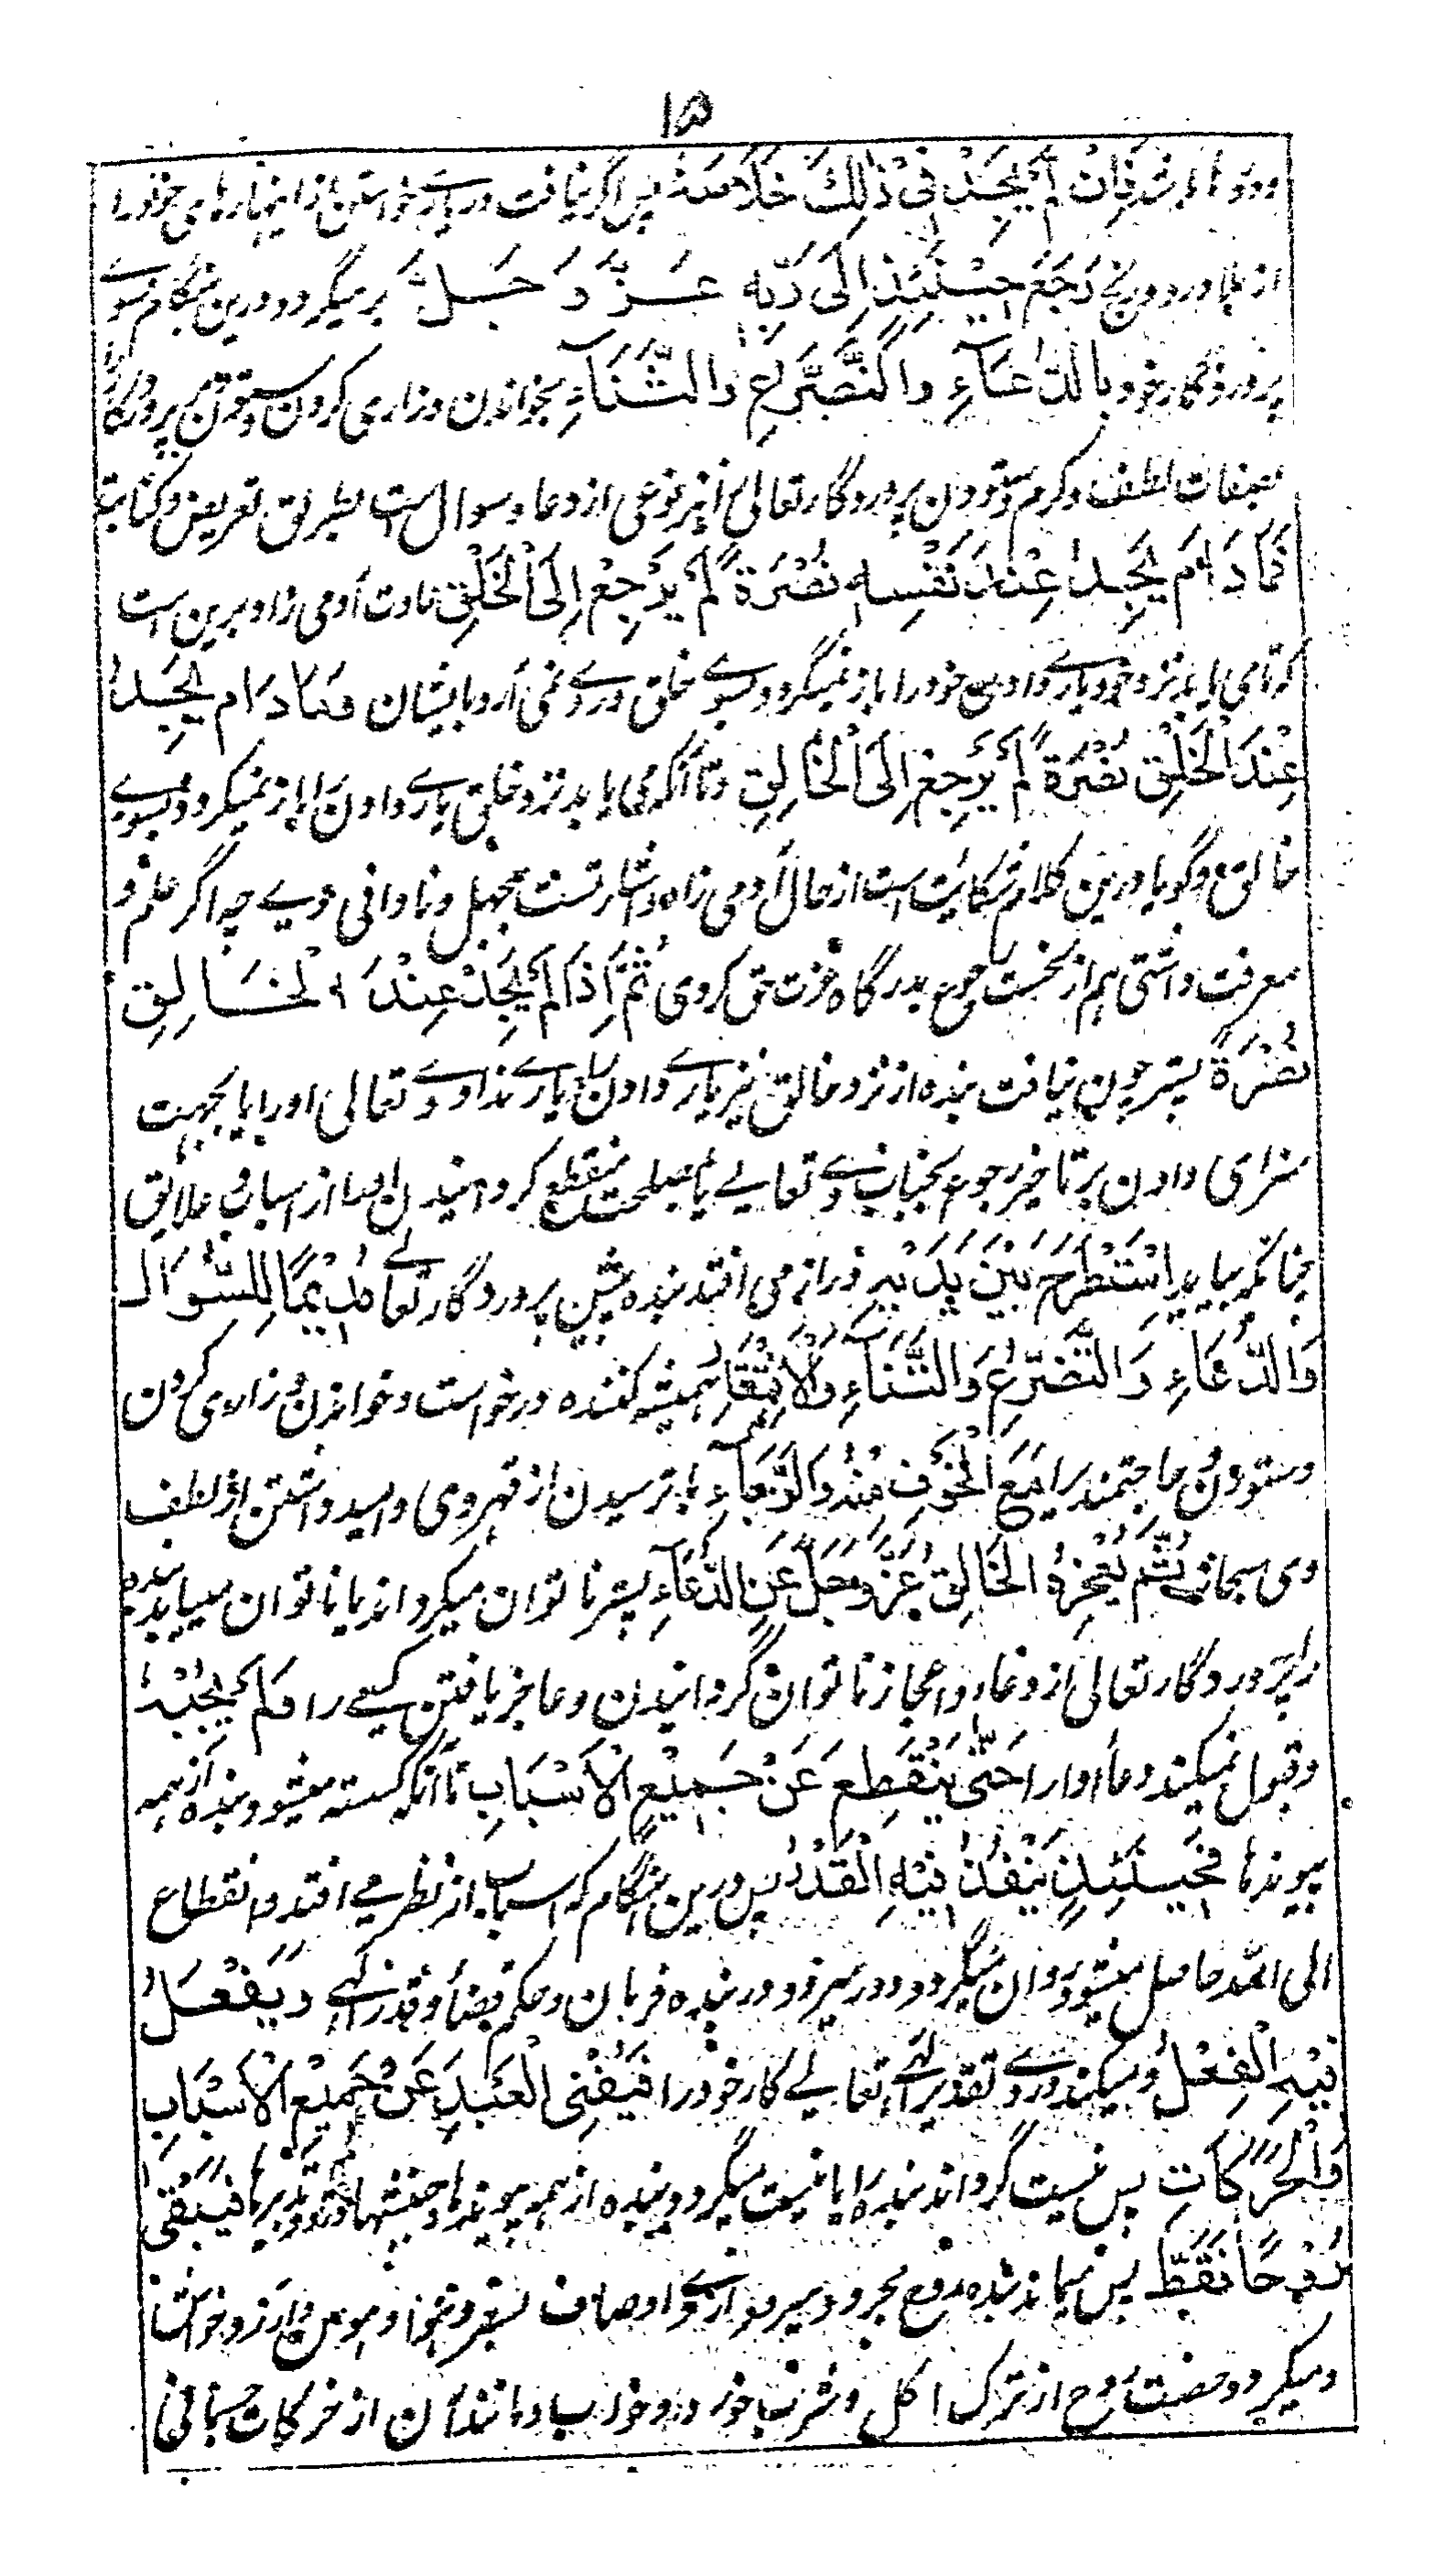 ۱۵
دردها باشد فَإِنْ لَمْ يَجِدْ فِي ذٰلِكَ خَلَاصَهُ پس اگر نیافت در یاری خواستن از اینها رهایی خود را
از بلا و درد و رنج رَجَعَ حِيْنَئِذٍ اِلٰى رَبِّهِ عَزَّ وَ جَلَّ بر میگردد درین هنگام بسوے
پروردگار خود بِالدُّعَآءِ وَالتَّضَرُّعِ وَالثَّنَآءِ بخواندن و زاری کردن و ستودن پروردگار
بصفات لطف و کرم و ستودن پروردگار تعالی نیز نوعی از دعا و سوال است بطریق تعریض و کنایت
فَمَا دَامَ يَجِدُ عِنْدَ نَفْسِهِ نُصْرَةً لَمْ يَرْجِعْ اِلَى الْخَلْقِ عادت آدمی زاد برین است
که تا می یابد نزد خود یارے دادن خود را باز نمیگردد بسوے خلق و روے نمی آرد بایشان وَمَا دَامَ يَجِدُ
عِنْدَ الْخَلْقِ نُصْرَةً لَمْ يَرْجِعْ اِلَى الْخَالِقِ و تا آنکه می یابد نزد خلق یارے دادن را باز نمیگردد بسوے
خالق و گویا درین کلام شکایت است از حال آدمی زاد و اشارتست بجهل و نادانی وے چه اگر علم و
معرفت داشتی هم از نخست رجوع بدرگاه عزت حق کردی ثُمَّ اِذَا لَمْ يَجِدْ عِنْدَ الْخَالِقِ
نُصْرَةً پستر چون نیافت بنده از نزد خالق نیز یارے دادن یا یارے نداد وے تعالی او را یا بجهت
سزای دادن بر تاخیر رجوع بجناب وے تعالے یا بمصلحت منقطع گردانیدن او را از اسباب و علایق
چنانکه بیاید اِسْتَطْرَحَ بَيْنَ يَدَيْهِ دراز می افتد بنده پیش پروردگار تعالے مُدِيْمًا لِلسُّؤَالِ
وَالدُّعَاءِ وَالتَّضَرُّعِ وَالثَّنَآءِ وَالْاِفْتِقَارِ همیشه کننده درخواست و خواندن و زاری کردن
و ستودن و حاجتمندی را مَعَ الْخَوْفِ مِنْهُ وَالرَّجَآءِ با ترسیدن از قهر وی و امید داشتن از لطف
وی سبحانه ثُمَّ يُعْجِزُهُ الْخَالِقُ عَزَّ وَجَلَّ عَنِ الدُّعَآءِ پستر ناتوان میگرداند یا ناتوان مییابد بنده
را پروردگار تعالی از دعا و اعجاز ناتوان گردانیدن و عاجز یافتن کسے را وَلَمْ يُجِبْهُ
و قبول نمیکند دعا او را حَتّٰى يَنْقَطِعَ عَنْ جَمِيْعِ الْاَسْبَابِ تا آنکه گسسته میشود بنده از همه
پیوندها فَحِيْنَئِذٍ يَنْفُذُ فِيْهِ الْقَدَرُ پس درین هنگام که اسباب از نظر مے افتد و انقطاع
الی الله حاصل میشود روان میگردد و در میرود در بنده فرمان و حکم قضا و قدر الٰهے وَيَفْعَلُ
فِيْهِ الْفِعْلُ و میکند در وے تقدیر الٰهی تعالے کار خود را فَيُفْنِى الْعَبْدَ عَنْ جَمِيْعِ الْاَسْبَابِ
وَالْحَرَكَاتِ پس نیست گرداند بنده را یا نیست میگردد بنده از همه پیوندها و جنبشها و تدبیرها فَيَبْقٰى
رُوْحًا فَقَطْ پس میماند بنده روح مجرد و اوصاف بشر و آرزو و خواهشها
و میگردد صفت روح از ترک اکل و شرب و خور و خواب و مانند آن از حرکات جسمانی